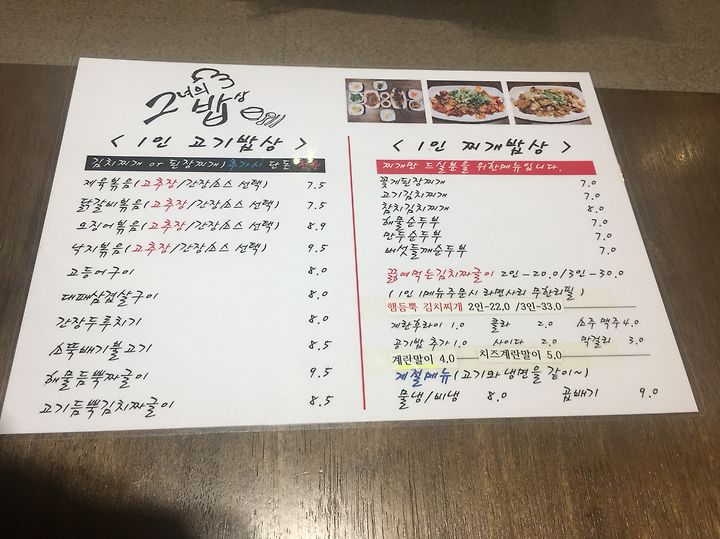 그녀의 밥상
< 1인 고기밥상 >
김치찌개 or 된장찌개) 추가시 단돈
제육볶음(고추장/간장소스 선택) 7.5
닭갈비볶음(고추장/간장소스 선택) 7.5
오징어볶음(고추장/간장소스 선택) 8.9
낙지볶음(고추장/간장소스 선택) 9.5
고등어구이 8.0
대패삼겹살구이 8.0
간장두루치기 8.0
소뚝배기불고기 8.5
해물듬뿍짜글이 9.5
고기듬뿍김치짜글이 8.5
< 1인 찌개밥상 >
찌개만 드실분을 위한메뉴입니다.
꽃게된장찌개 7.0
고기김치찌개 7.0
참치김치찌개 8.0
해물순두부 7.0
만두순두부 7.0
버섯들깨순두부 7.0
끓여먹는김치짜글이 2인-20.0/3인-30.0
(1인 1메뉴주문시 라면사리 무한리필)
햄듬뿍 김치찌개 2인-22.0 /3인-33.0
계란후라이 1.0 콜라 2.0 소주 맥주 4.0
공기밥 추가 1.0 사이다 2.0 막걸리 3.0
계란말이 4.0 치즈계란말이 5.0
계절메뉴(고기와 냉면을 같이~)
물냉/비냉 8.0 곱빼기 9.0